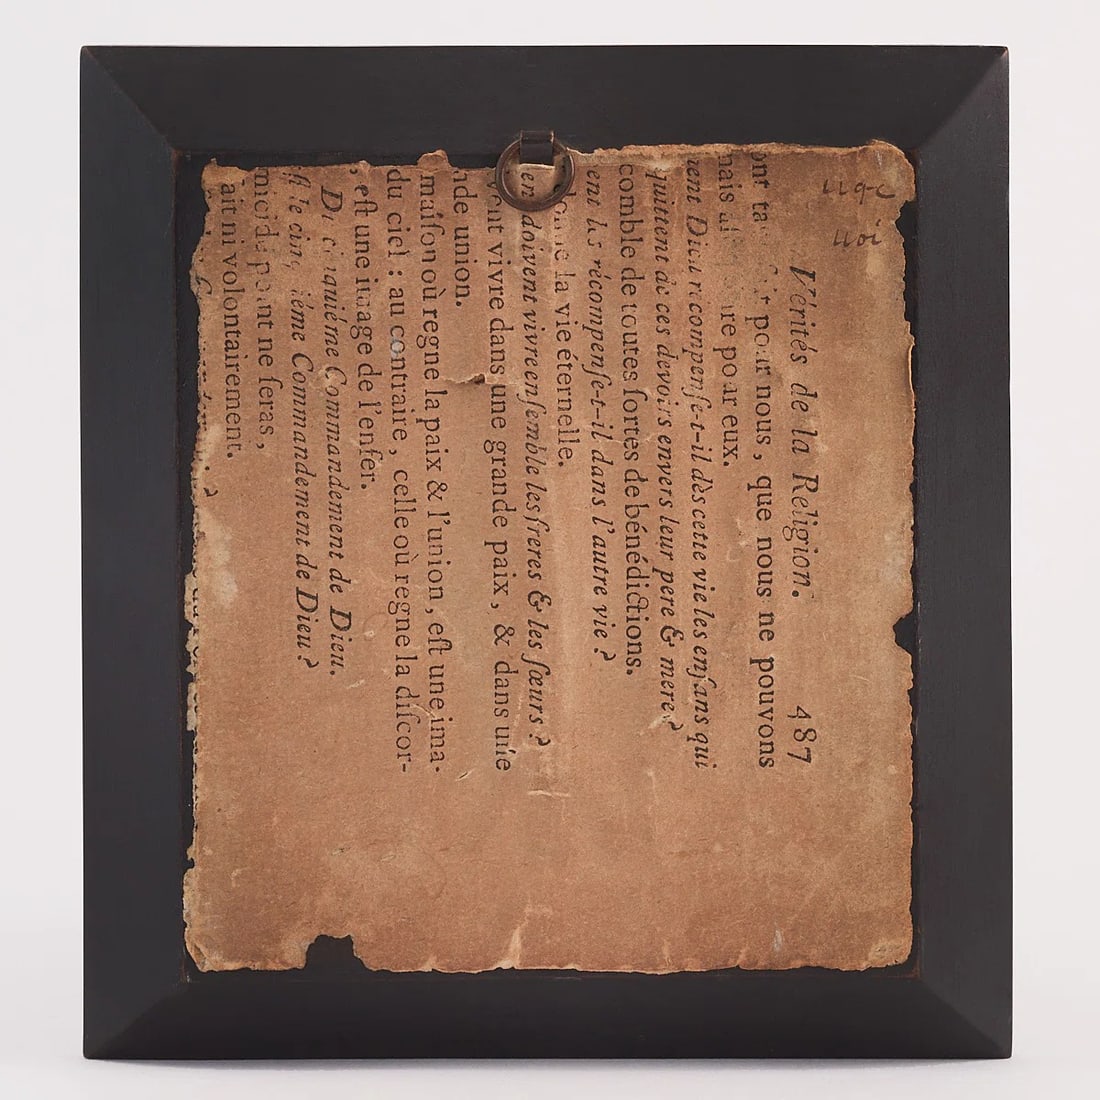 Vérités de la Religion. 487
pour nous, que nous ne pouvons
eux.
Dieu récompense-t-il dès cette vie les enfans qui
quittent de ces devoirs envers leur pere & mere?
comble de toutes sortes de bénédictions.
ent les récompense-t-il dans l'autre vie?
la vie éternelle.
en doivent vivre ensemble les freres & les sœurs?
vent vivre dans une grande paix, & dans une
de union.
maison où regne la paix & l'union, est une ima-
du ciel : au contraire, celle où regne la discor-
, est une image de l'enfer.
Du cinquiéme Commandement de Dieu.
le cinquiéme Commandement de Dieu?
point ne seras,
ni volontairement.